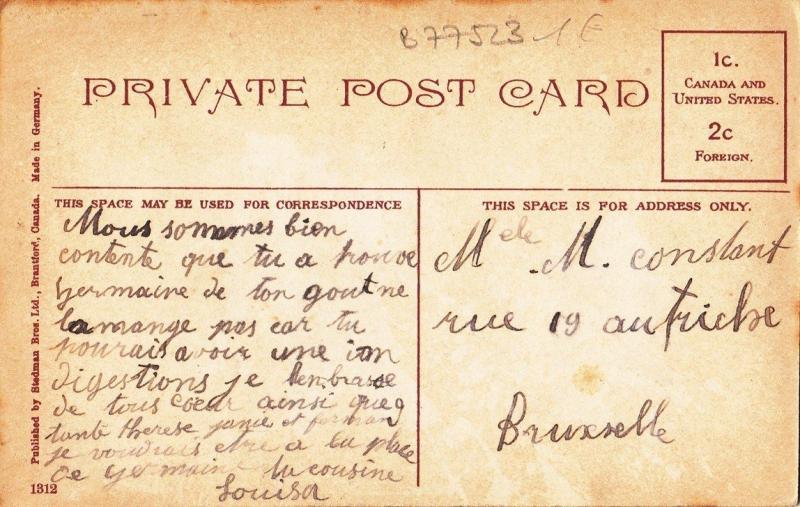 B77523 1 E
PRIVATE POST CARD
1c.
CANADA AND
UNITED STATES.
2c
FOREIGN.
Published by Stedman Bros. Ltd., Brantford, Canada. Made in Germany.
THIS SPACE MAY BE USED FOR CORRESPONDENCE
Nous sommes bien
contente que tu a trouve
germaine de ton gout ne
la mange pas car tu
pourais avoir une
digestions je t'embrasse
de tous coeur ainsi que
tante therese janie et
je voudrais etre a la place
de germaine ta cousine
Louisa
1312
THIS SPACE IS FOR ADDRESS ONLY.
Melle M. constant
rue 19 autriche
Bruxselle